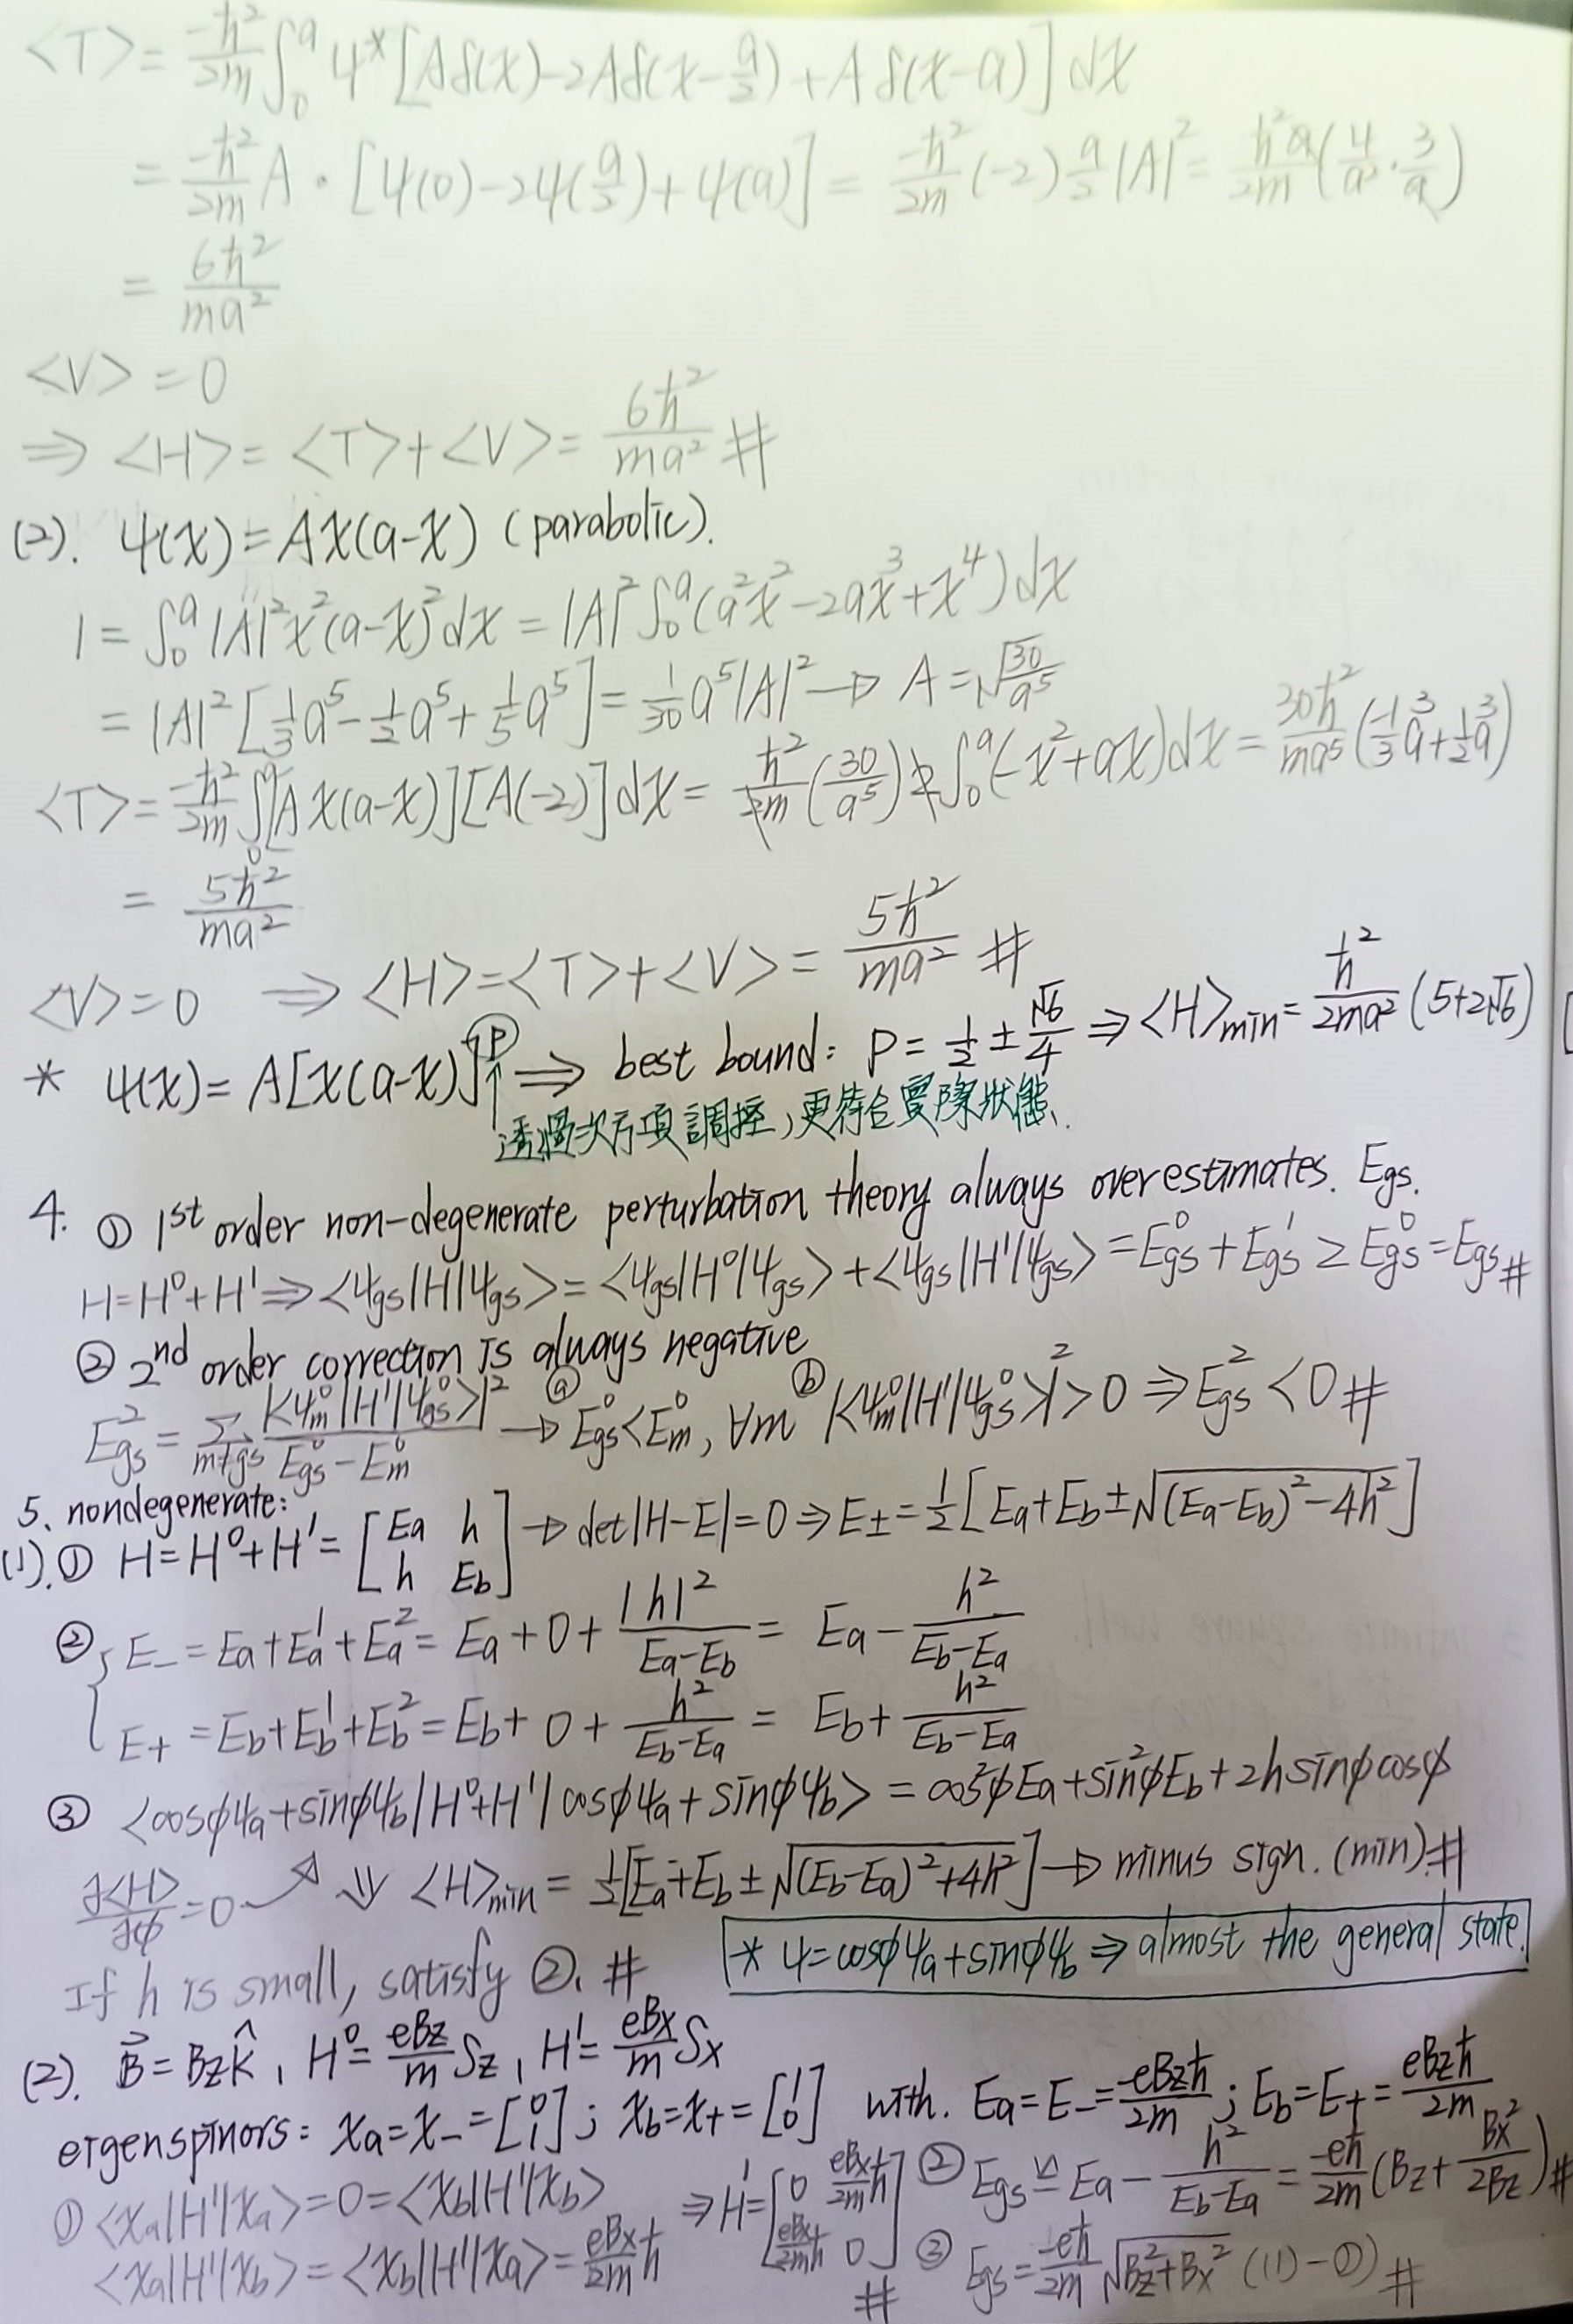 <T> = -ħ²/2m ∫₀ᵃ ψ* [Aδ(x) - 2Aδ(x - a/2) + Aδ(x - a)] dx
= -ħ²/2m A · [ψ(0) - 2ψ(a/2) + ψ(a)] = -ħ²/2m (-2) a/2 |A|² = ħ²a/2m (4/a² · 3/a)
= 6ħ²/ma²
<V> = 0
⇒ <H> = <T> + <V> = 6ħ²/ma² #
(2). ψ(x) = Ax(a-x) (parabolic).
1 = ∫₀ᵃ |A|²x²(a-x)² dx = |A|² ∫₀ᵃ (a²x² - 2ax³ + x⁴) dx
= |A|² [1/3 a⁵ - 1/2 a⁵ + 1/5 a⁵] = 1/30 a⁵|A|² → A = √(30/a⁵)
<T> = -ħ²/2m ∫₀ᵃ [Ax(a-x)][A(-2)] dx = ħ²/2m (30/a⁵) 2 ∫₀ᵃ (-x² + ax) dx = 30ħ²/ma⁵ (-1/3 a³ + 1/2 a³)
= 5ħ²/ma²
<V> = 0 ⇒ <H> = <T> + <V> = 5ħ²/ma² #
* ψ(x) = A[x(a-x)]ᵖ ⇒ best bound: P = 1/2 ± √6/4 ⇒ <H>min = ħ²/2ma² (5+2√6)
透過次方項調控,更符合實際狀態.
4. ① 1st order non-degenerate perturbation theory always overestimates. Egs.
H = H⁰ + H' ⇒ <ψgs|H|ψgs> = <ψgs|H⁰|ψgs> + <ψgs|H'|ψgs> = Egs⁰ + Egs¹ ≥ Egs⁰ = Egs #
② 2nd order correction is always negative
Egs² = Σ m≠gs |<ψm⁰|H'|ψgs⁰>|² / (Egs⁰ - Em⁰) → ⓐ Egs⁰ < Em⁰, ∀m ⓑ |<ψm⁰|H'|ψgs⁰>|² > 0 ⇒ Egs² < 0 #
5. nondegenerate:
(1). ① H = H⁰ + H' = [Ea h; h Eb] → det|H-E| = 0 ⇒ E± = 1/2 [Ea + Eb ± √((Ea-Eb)² - 4h²)]
② { E₋ = Ea + Ea¹ + Ea² = Ea + 0 + |h|²/(Ea-Eb) = Ea - h²/(Eb-Ea)
E₊ = Eb + Eb¹ + Eb² = Eb + 0 + h²/(Eb-Ea) = Eb + h²/(Eb-Ea)
③ <cosφψa + sinφψb|H⁰+H'|cosφψa + sinφψb> = cos²φEa + sin²φEb + 2h sinφcosφ
∂<H>/∂φ = 0 ↗ ⇓ <H>min = 1/2 [Ea + Eb ± √((Eb-Ea)² + 4h²)] → minus sign. (min). #
* ψ = cosφψa + sinφψb ⇒ almost the general state.
If h is small, satisfy ②. #
(2). B⃗ = Bz k̂, H⁰ = eBz/m Sz, H' = eBx/m Sx
eigenspinors: χa = χ₋ = [0; 1]; χb = χ₊ = [1; 0] with. Ea = E₋ = -eBzħ/2m; Eb = E₊ = eBzħ/2m
① <χa|H'|χa> = 0 = <χb|H'|χb>
<χa|H'|χb> = <χb|H'|χa> = eBx/2m ħ
⇒ H' = [0 eBx/2m ħ; eBx/2m ħ 0] #
② Egs ≅ Ea - h²/(Eb-Ea) = -eħ/2m (Bz + Bx²/2Bz) #
③ Egs = -eħ/2m √(Bz² + Bx²) ((1)-①) #